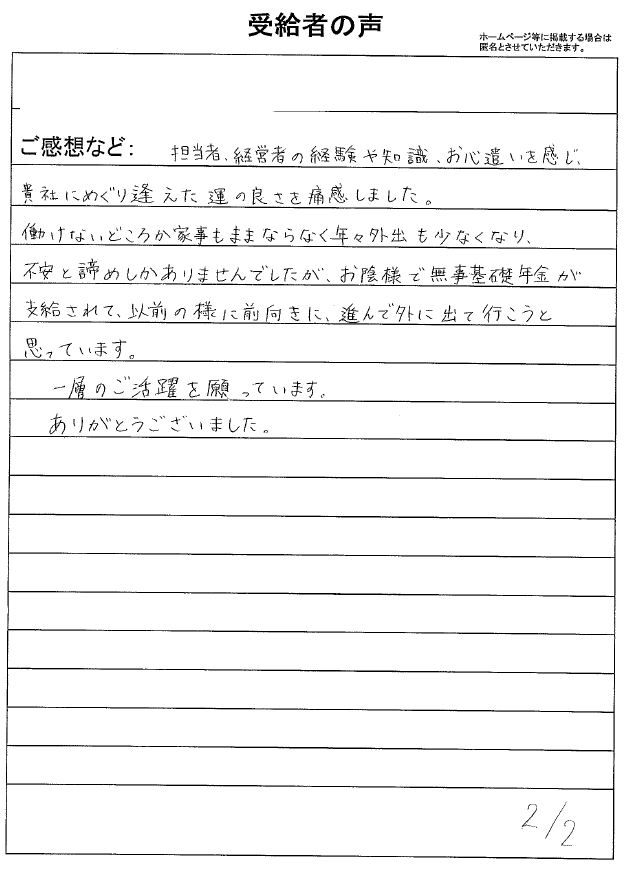 受給者の声
ホームページ等に掲載する場合は
匿名とさせていただきます。
ご感想など： 担当者、経営者の経験や知識、お心遣いを感じ、
貴社にめぐり逢えた運の良さを痛感しました。
働けないどころか家事もままならなく年々外出も少なくなり、
不安と諦めしかありませんでしたが、お陰様で無事基礎年金が
支給されて、以前の様に前向きに、進んで外に出て行こうと
思っています。
一層のご活躍を願っています。
ありがとうございました。
2/2